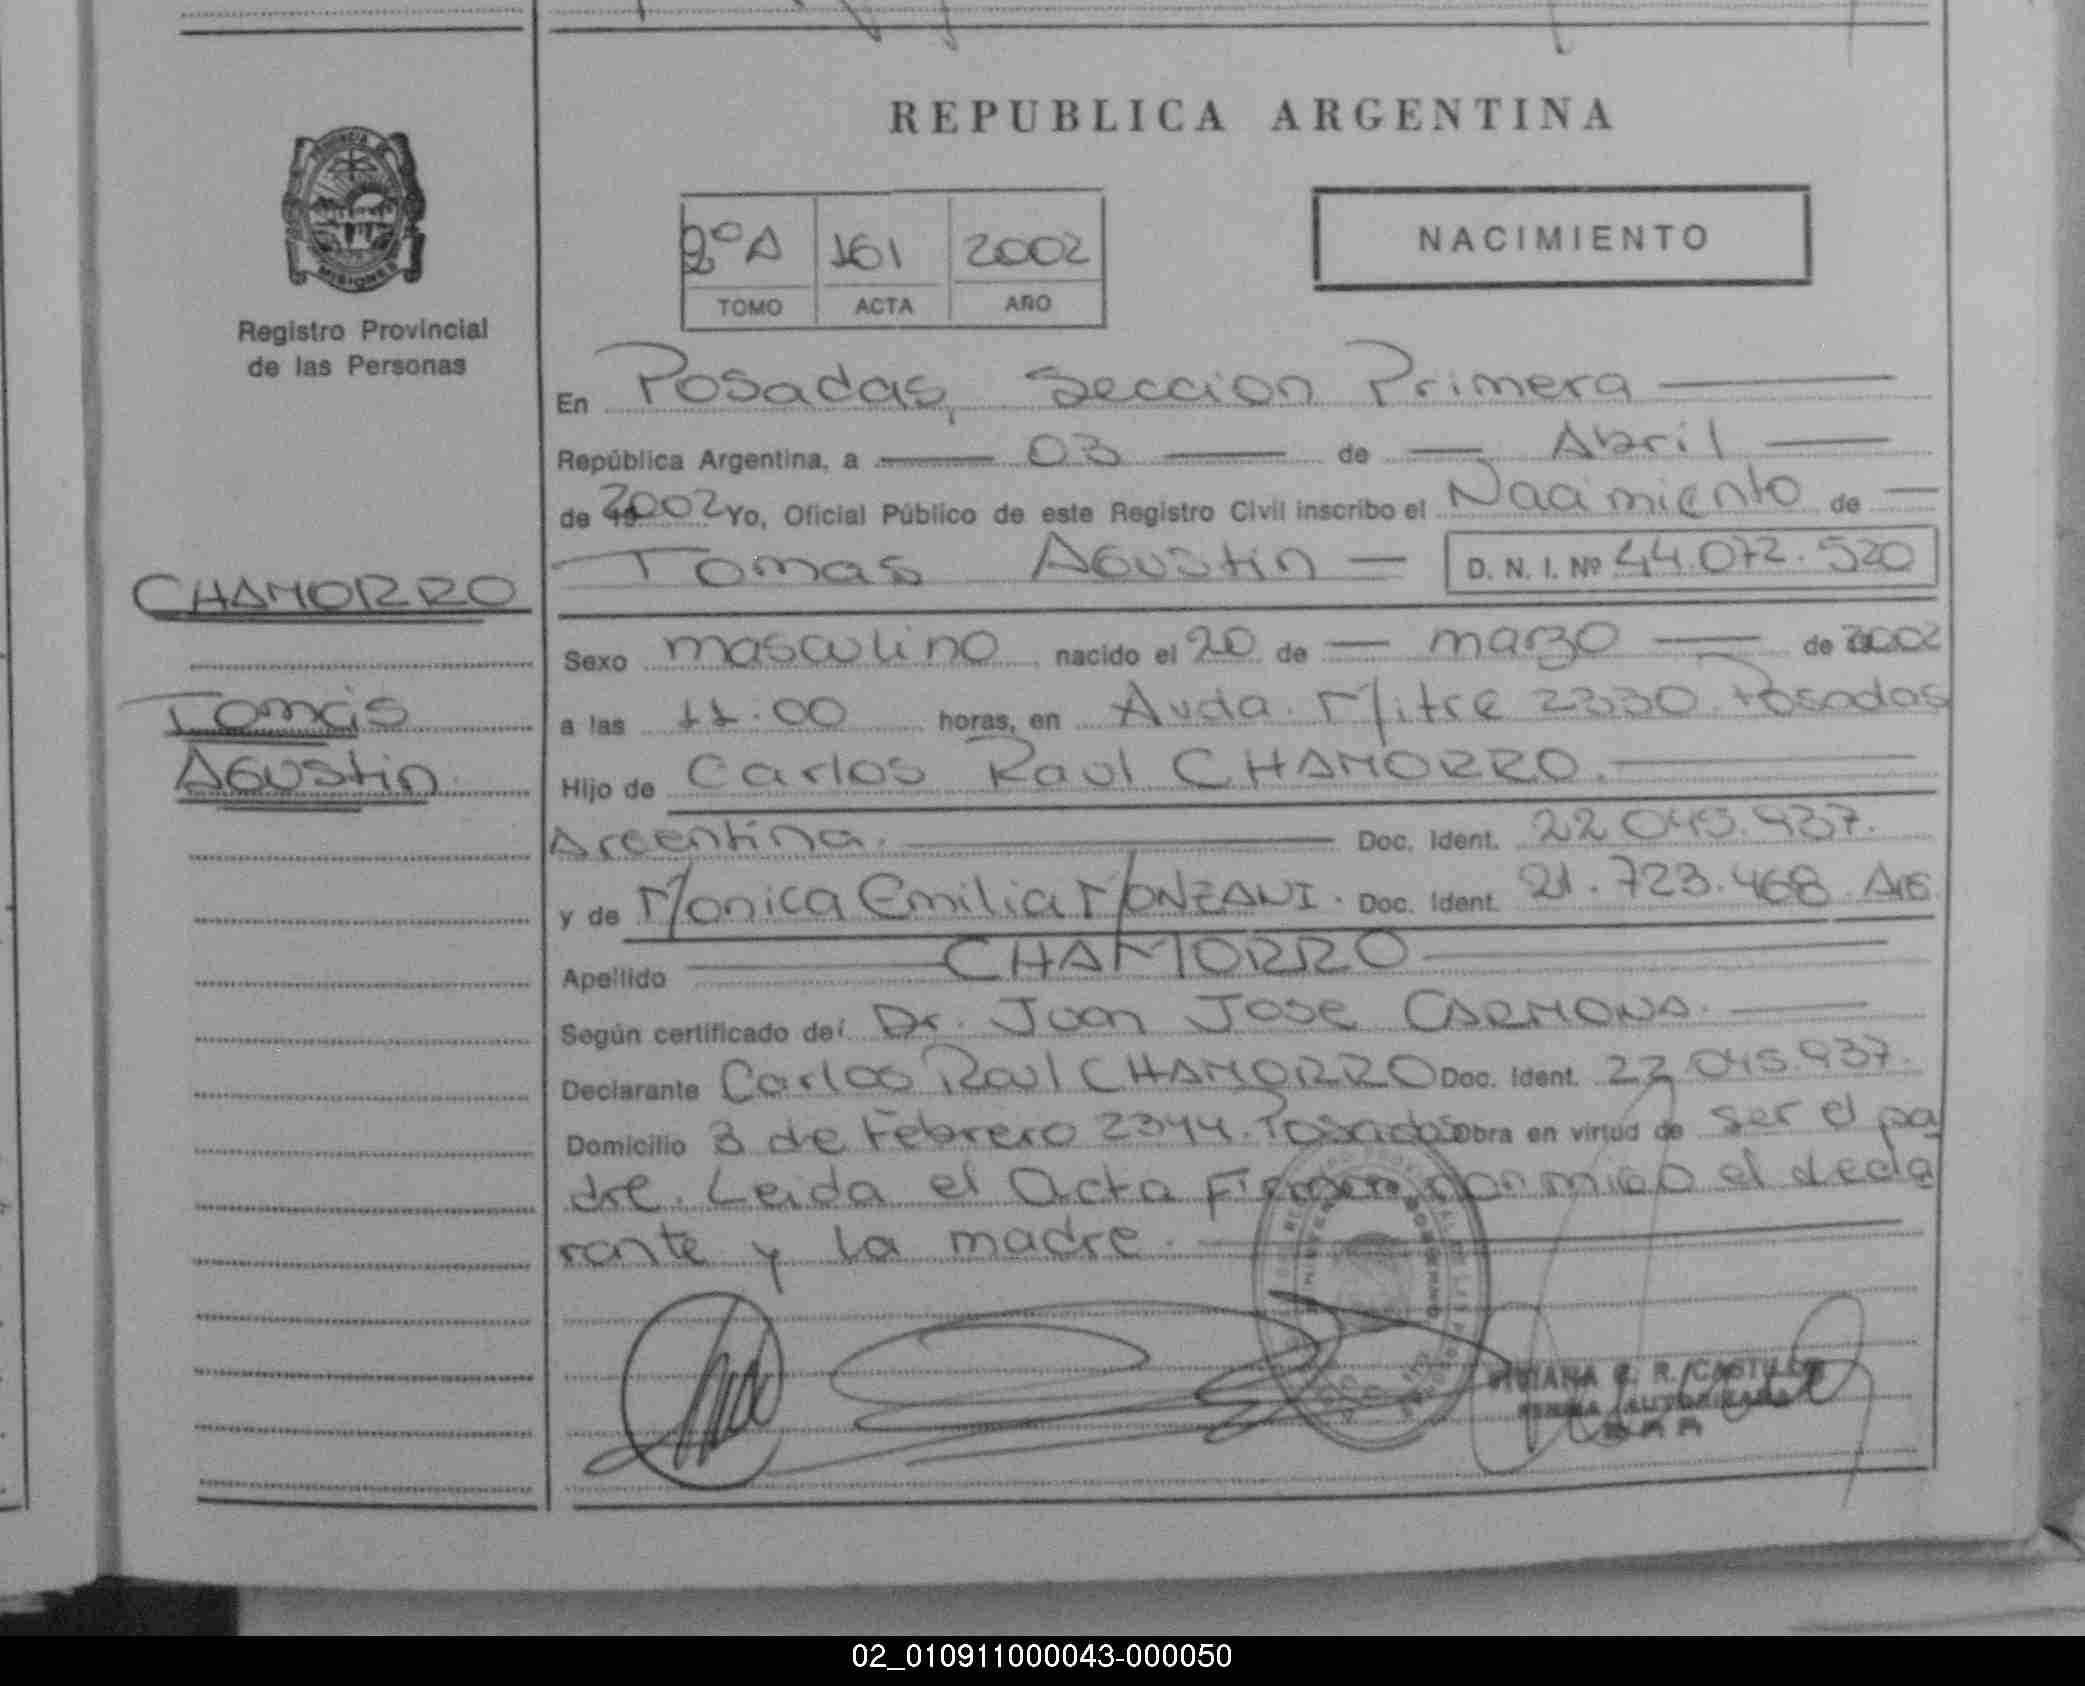 REPUBLICA ARGENTINA
PROVINCIA DE
MISIONES
Registro Provincial
de las Personas
2º A 161 2002
TOMO ACTA AÑO
NACIMIENTO
En Posadas, Seccion Primera
República Argentina, a 03 de Abril
de 2002 Yo, Oficial Público de este Registro Civil inscribo el Nacimiento de
CHAMORRO
Tomas Agustin D. N. I. Nº 44.072.520
Sexo masculino nacido el 20 de marzo de 2002
Tomás
a las 11.00 horas, en Avda. Mitre 2330 Posadas
Agustin
Hijo de Carlos Raul CHAMORRO.
Argentina. Doc. Ident. 22 045.937.
y de Monica Emilia MONZANI. Doc. Ident. 21.723.468 ARG
Apellido CHAMORRO
Según certificado del Dr. Juan Jose CARMONA.
Declarante Carlos Raul CHAMORRO Doc. Ident. 22 045.937.
Domicilio 3 de Febrero 2344. Posadas Obra en virtud de ser el pa
dre. Leida el Acta Firman conmigo el decla
rante y la madre.
R. CASTILLO
FIRMA AUTORIZADA
02_010911000043-000050